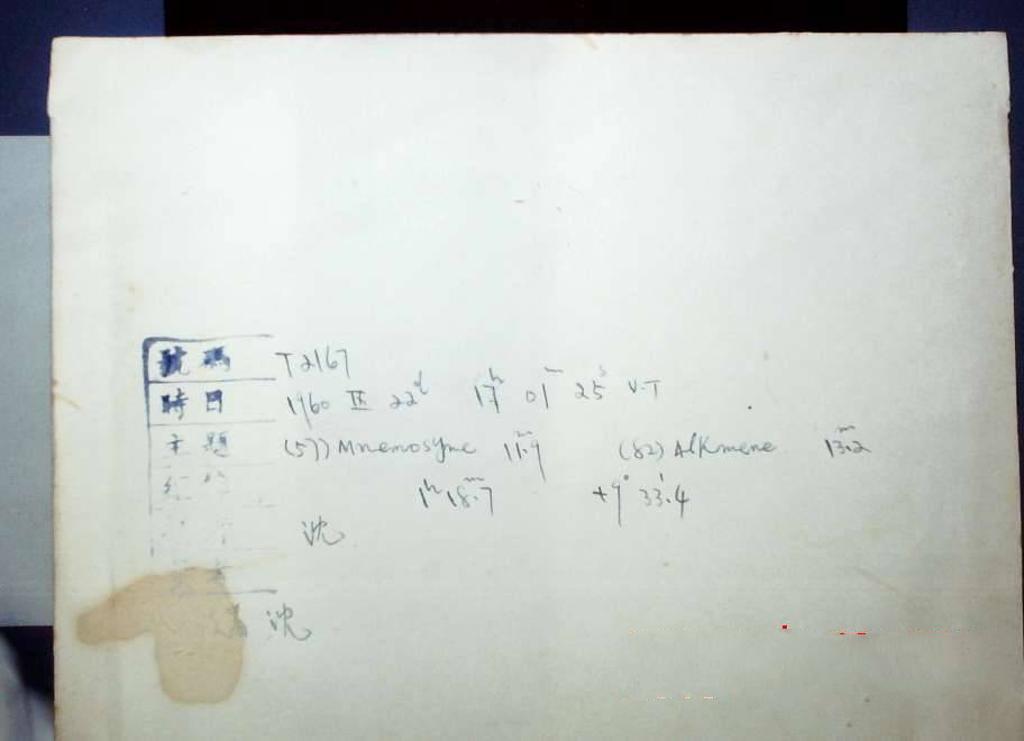 號碼 T2167
時日 1960 IX 22ᵈ 17ʰ 01ᵐ 25ˢ U.T
主題 (57) Mnemosyne 11ᵐ.9 (82) Alkmene 13ᵐ.2
1ʰ 18ᵐ.7 +9° 33'.4
沈
沈